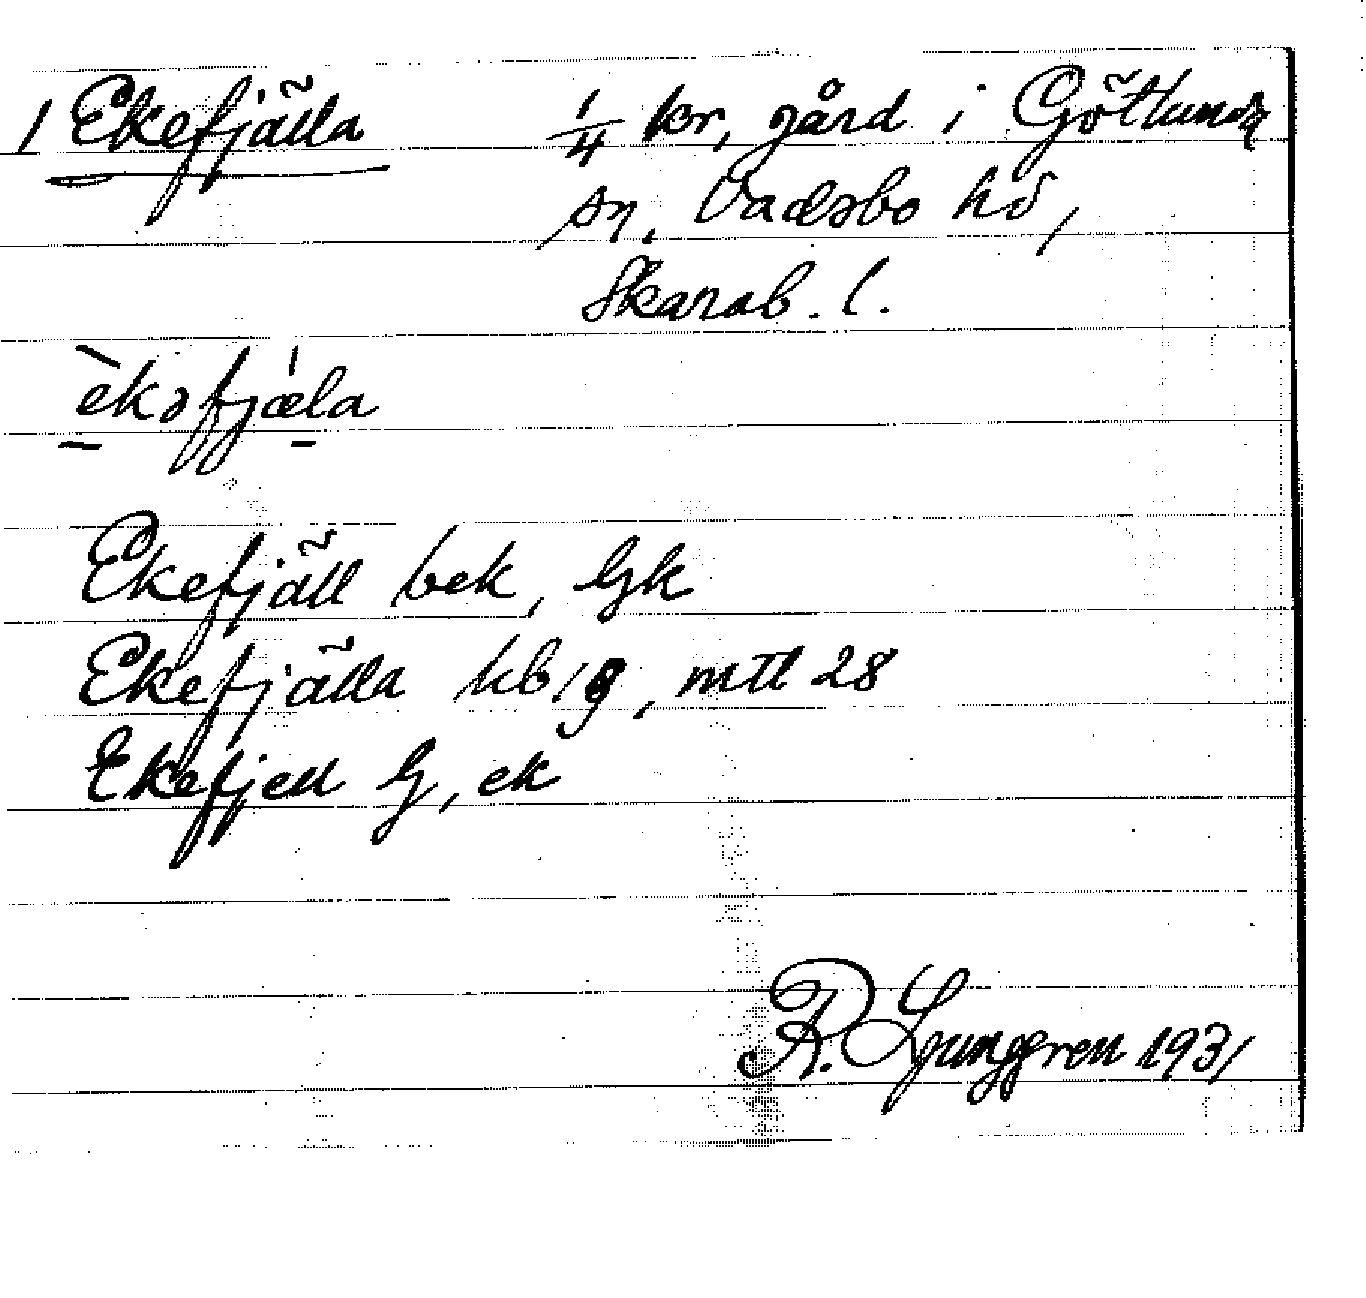 1 Ekefjälla 1/4 kr, gård i Götlunda
sn, Vadsbo hd,
Skarab. l.
èkəfjæ̍la
Ekefjäll bek, Gk
Ekefjälla kb/9, mtl 28
Ekefjell G, ek
R. Ljunggren 1931